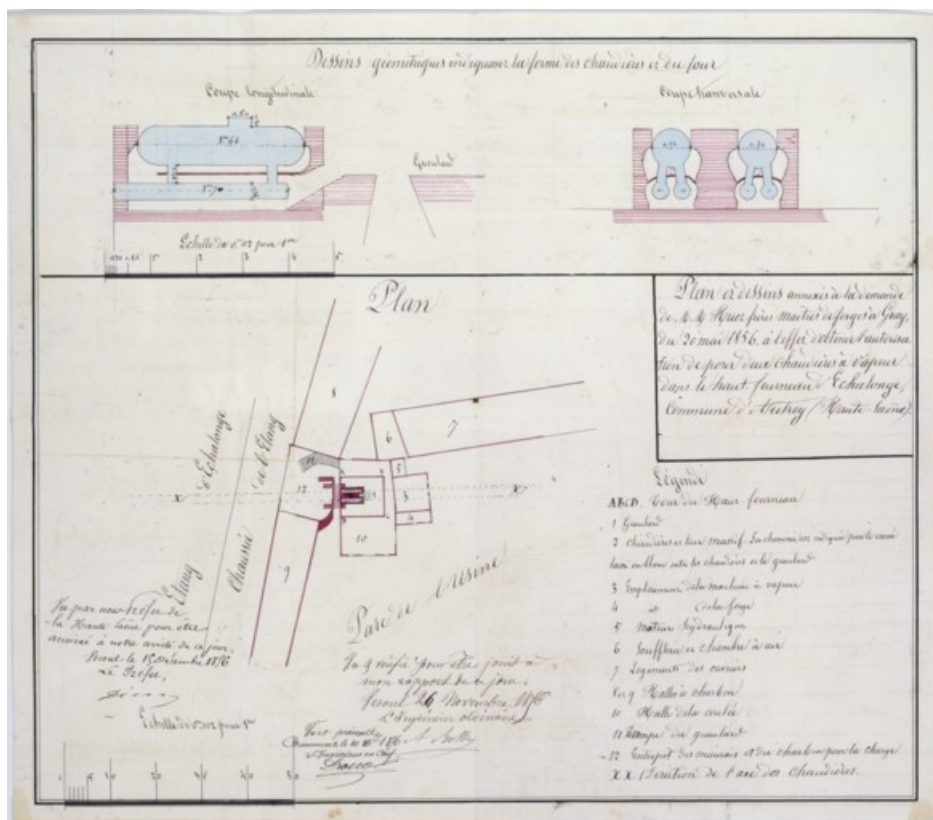 Dessins géométriques indiquant la forme des chaudières et du four
Coupe longitudinale
Coupe transversale
Gueulard
Echelle de 0,02 pour 1m
1 2 3 4 5
Plan
Plan et dessins annexés à la demande
de M.M. Huot frères maîtres de forges à Gray,
du 20 mai 1856, à l'effet d'obtenir l'autorisa
tion de poser deux chaudières à vapeur
dans le haut fourneau d'Echalonge,
Commune d'Autrey (Haute Saône).
8
7
6
5
11
12
X
X
1
3
4
10
9
Etang d'Echalonge
Chaussée de l'Etang
Parc de l'Usine
Légende
ABCD. Tour du Haut fourneau
1 Gueulard
2 Chaudières et leur massif. La cheminée est indiquée par le carré
laissé en blanc entre les chaudières et le gueulard
3 Emplacement de la machine à vapeur
4 id de la forge
5 Moteur hydraulique
6 Soufflerie et chambre à air
7 Logements des ouvriers
8 et 9 Halles à charbon
10 Halle de la coulée
11 Rampe du gueulard
12 Entrepôt des minerais et du charbon pour la charge
X X Direction de l'axe des chaudières.
Vu par nous Préfet de
la Haute Saône pour être
annexé à notre arrêté de ce jour.
Vesoul le 15 Décembre 1856
Le Préfet,
Vu & vérifié pour être joint à
mon rapport de ce jour.
Vesoul 26 Novembre 1856
L'Ingénieur ordinaire
Vu et présenté
L'Ingénieur en Chef
Echelle de 0,002 pour 1m